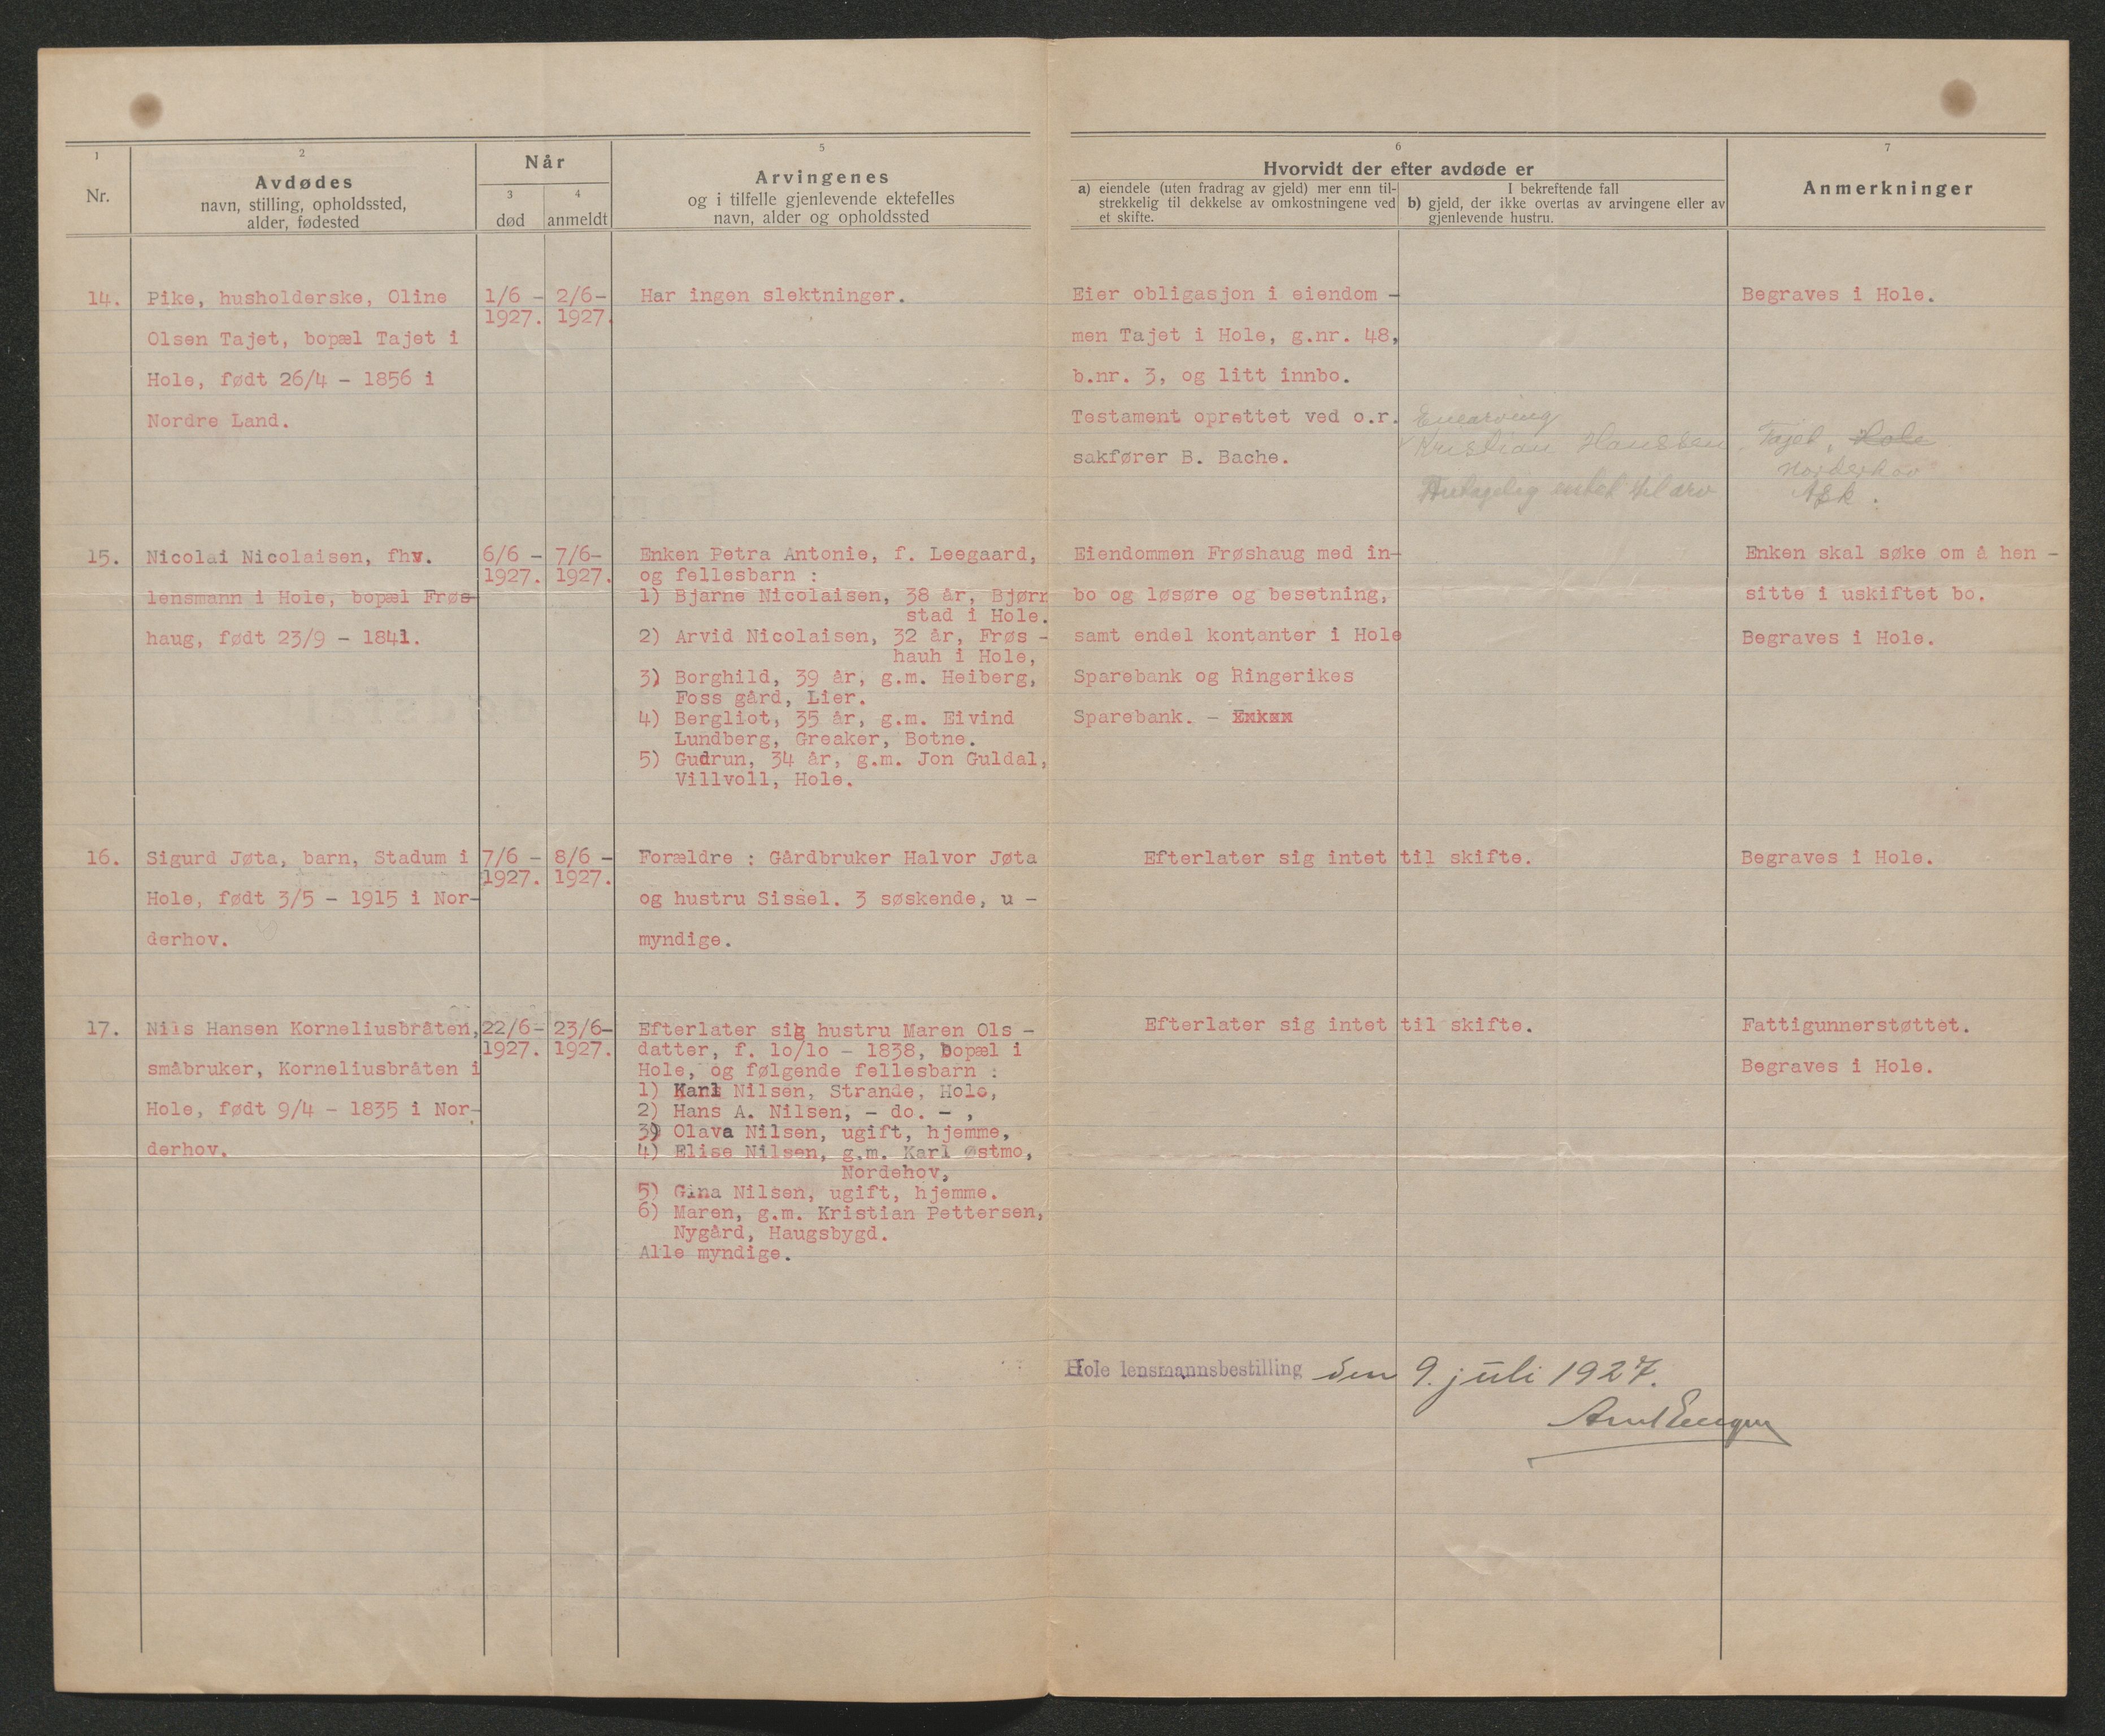 1
Nr.
2
Avdødes
navn, stilling, opholdssted,
alder, fødested
Når
3
død
4
anmeldt
5
Arvingenes
og i tilfelle gjenlevende ektefelles
navn, alder og opholdssted
6
Hvorvidt der efter avdøde er
a) eiendele (uten fradrag av gjeld) mer enn til-
strekkelig til dekkelse av omkostningene ved
et skifte.
I bekreftende fall
b) gjeld, der ikke overtas av arvingene eller av
gjenlevende hustru.
7
Anmerkninger
14.
Pike, husholderske, Oline
Olsen Tajet, bopæl Tajet i
Hole, født 26/4 - 1856 i
Nordre Land.
1/6 -
1927.
2/6-
1927.
Har ingen slektninger.
Eier obligasjon i eiendom -
men Tajet i Hole, g.nr. 48,
b.nr. 3, og litt innbo.
Testament oprettet ved o.r.
sakfører B. Bache.
Enearving
Kristian Hansen
Antagelig intet til arv
Begraves i Hole.
Tajet, Hole
Norderhov
Ask.
15.
Nicolai Nicolaisen, fhv.
lensmann i Hole, bopæl Frøs-
haug, født 23/9 - 1841.
6/6 -
1927.
7/6-
1927.
Enken Petra Antonie, f. Leegaard,
og fellesbarn :
1) Bjarne Nicolaisen, 38 år, Bjørn
stad i Hole.
2) Arvid Nicolaisen, 32 år, Frøs -
hauh i Hole,
3) Borghild, 39 år, g.m. Heiberg,
Foss gård, Lier.
4) Bergliot, 35 år, g.m. Eivind
Lundberg, Greaker, Botne.
5) Gudrun, 34 år, g.m. Jon Guldal,
Villvoll, Hole.
Eiendommen Frøshaug med in-
bo og løsøre og besetning,
samt endel kontanter i Hole
Sparebank og Ringerikes
Sparebank. - Enken
Enken skal søke om å hen -
sitte i uskiftet bo.
Begraves i Hole.
16.
Sigurd Jøta, barn, Stadum i
Hole, født 3/5 - 1915 i Nor-
derhov.
7/6 -
1927.
8/6 -
1927.
Forældre : Gårdbruker Halvor Jøta
og hustru Sissel. 3 søskende, u -
myndige.
Efterlater sig intet til skifte.
Begraves i Hole.
17.
Nils Hansen Korneliusbråten,
småbruker, Korneliusbråten i
Hole, født 9/4 - 1835 i Nor-
derhov.
22/6-
1927.
23/6-
1927.
Efterlater sig hustru Maren Ols -
datter, f. lo/lo - 1838, bopæl i
Hole, og følgende fellesbarn :
1) Karl Nilsen, Strande, Hole,
2) Hans A. Nilsen, - do. - ,
3) Olava Nilsen, ugift, hjemme,
4) Elise Nilsen, g.m. Karl Østmo,
Nordehov,
5) Gina Nilsen, ugift, hjemme.
6) Maren, g.m. Kristian Pettersen,
Nygård, Haugsbygd.
Alle myndige.
Efterlater sig intet til skifte.
Fattigunnerstøttet.
Begraves i Hole.
Hole lensmannsbestilling den 9. juli 1927.